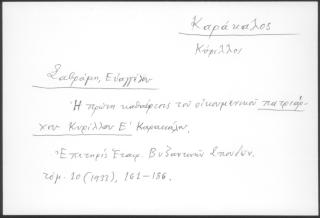 Καράκαλος
Κύριλλος
Σαβράμη, Εὐαγγέλου
Ἡ πρώτη καθαίρεσις τοῦ οἰκουμενικοῦ πατριάρ-
χου Κυρίλλου Ε' Καρακάλου.
Ἐπετηρίς Ἑταιρ. Βυζαντινῶν Σπουδῶν.
τόμ. 10 (1933), 161-186.